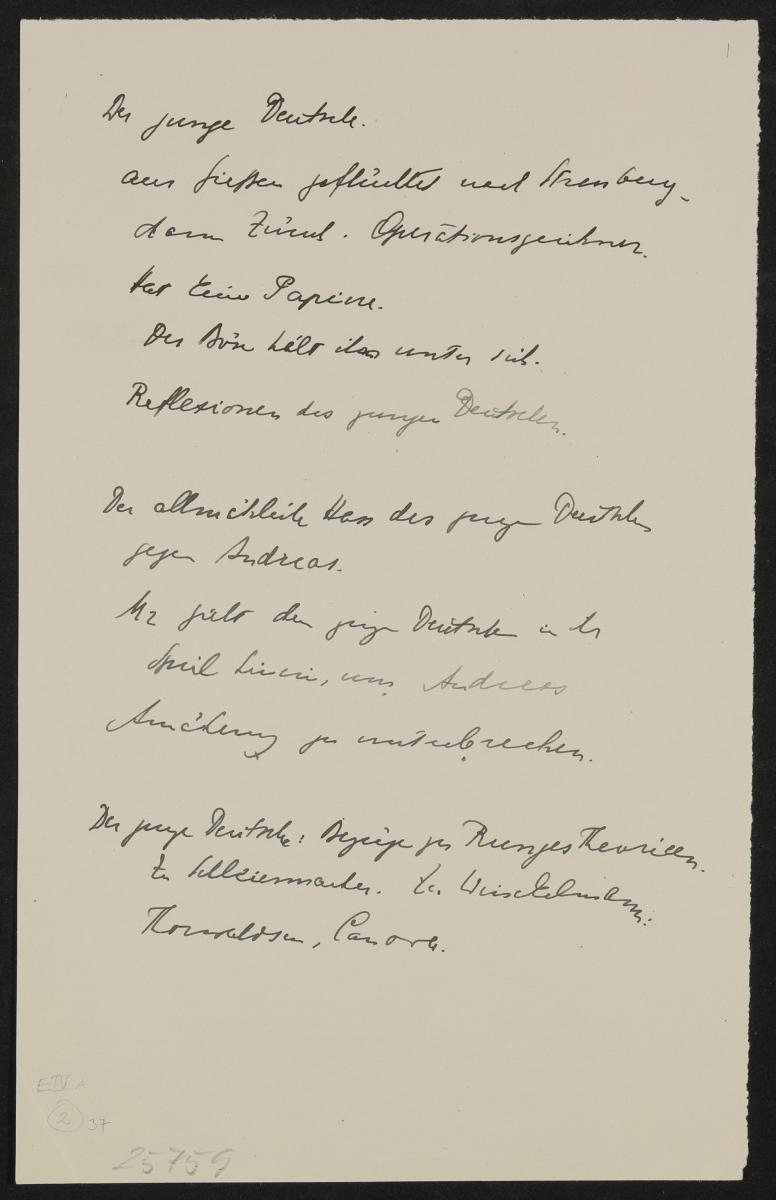 1
Der junge Deutsche.
aus Gießen geflüchtet nach Strassburg,
dann Zürich. Operationszeichner.
Hat keine Papiere.
Der Böse hält ihn unter sich.
Reflexionen des jungen Deutschen.
Der allmähliche Hass des jungen Deutschen
gegen Andreas.
M2 zieht den jungen Deutschen in das
Spiel hinein, um Andreas
Annäherung zu unterbrechen.
Der junge Deutsche: Bezüge zu Runges Theorieen.
Zu Schleiermacher. Zu Winckelmann.
Thorwaldsen, Canova.
E IV A
2 37
25759